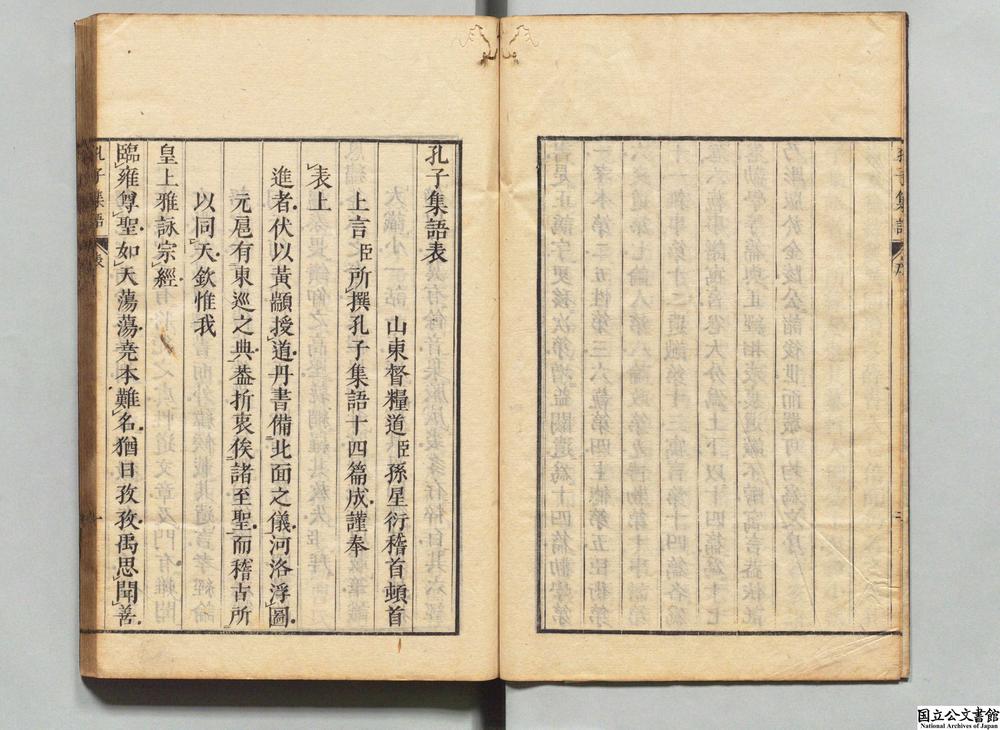 孔子集語表
山東督糧道臣孫星衍稽首頓首
上言臣所撰孔子集語十四篇成謹奉
表上
進者伏以黃顓授道丹書備北面之儀河洛浮圖
元扈有東巡之典葢折衷俟諸至聖而稽古所
以同天欽惟我
皇上雅詠宗經
臨雍尊聖如天蕩蕩堯本難名猶日孜孜禹思聞善
孔子集語
表
国立公文書館
National Archives of Japan